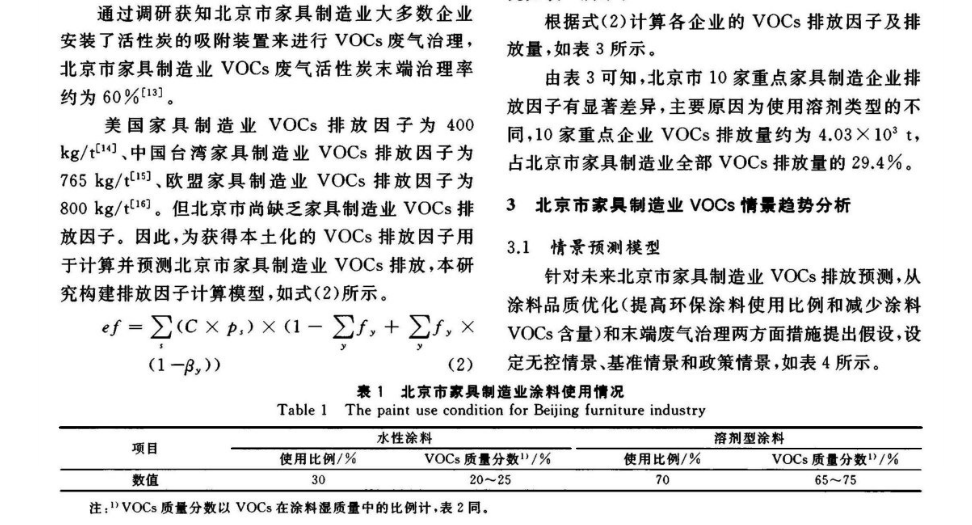 通过调研获知北京市家具制造业大多数企业
安装了活性炭的吸附装置来进行 VOCs 废气治理，
北京市家具制造业 VOCs 废气活性炭末端治理率
约为 60%[13]。
美国家具制造业 VOCs 排放因子为 400
kg/t[14]、中国台湾家具制造业 VOCs 排放因子为
765 kg/t[15]、欧盟家具制造业 VOCs 排放因子为
800 kg/t[16]。但北京市尚缺乏家具制造业 VOCs 排
放因子。因此，为获得本土化的 VOCs 排放因子用
于计算并预测北京市家具制造业 VOCs 排放，本研
究构建排放因子计算模型，如式(2)所示。
ef = ∑s(C × ps) × (1 − ∑y fy + ∑y fy ×
(1−βy)) (2)
根据式(2)计算各企业的 VOCs 排放因子及排
放量，如表 3 所示。
由表 3 可知，北京市 10 家重点家具制造企业排
放因子有显著差异，主要原因为使用溶剂类型的不
同，10 家重点企业 VOCs 排放量约为 4.03×10³ t，
占北京市家具制造业全部 VOCs 排放量的 29.4%。
3 北京市家具制造业 VOCs 情景趋势分析
3.1 情景预测模型
针对未来北京市家具制造业 VOCs 排放预测，从
涂料品质优化(提高环保涂料使用比例和减少涂料
VOCs 含量)和末端废气治理两方面措施提出假设，设
定无控情景、基准情景和政策情景，如表 4 所示。
表 1 北京市家具制造业涂料使用情况
Table 1 The paint use condition for Beijing furniture industry
项目 水性涂料 溶剂型涂料
使用比例/% VOCs 质量分数¹⁾/% 使用比例/% VOCs 质量分数¹⁾/%
数值 30 20～25 70 65～75
注：¹⁾VOCs 质量分数以 VOCs 在涂料湿质量中的比例计，表 2 同。